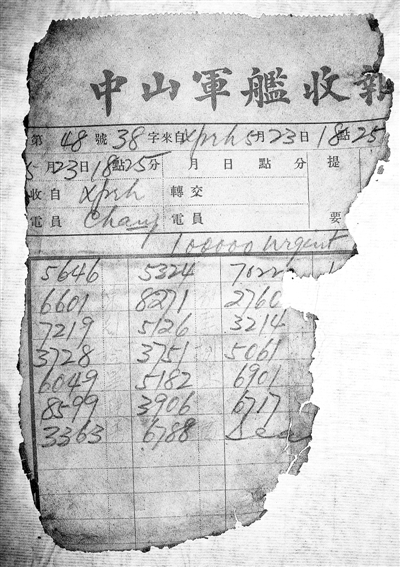 中山軍艦收報
第 48 號 38 字來自 Xprh 5月23日18點25
5月23日18點25分 月 日 點 分 提
收自 Xprh 轉交
電員 Chang 電員 要
100000 urgent
5646 5324 7022
6601 8271 2760
7219 5126 3214
3728 3751 5061
6049 5182 6901
8599 3906 6717
3363 6788